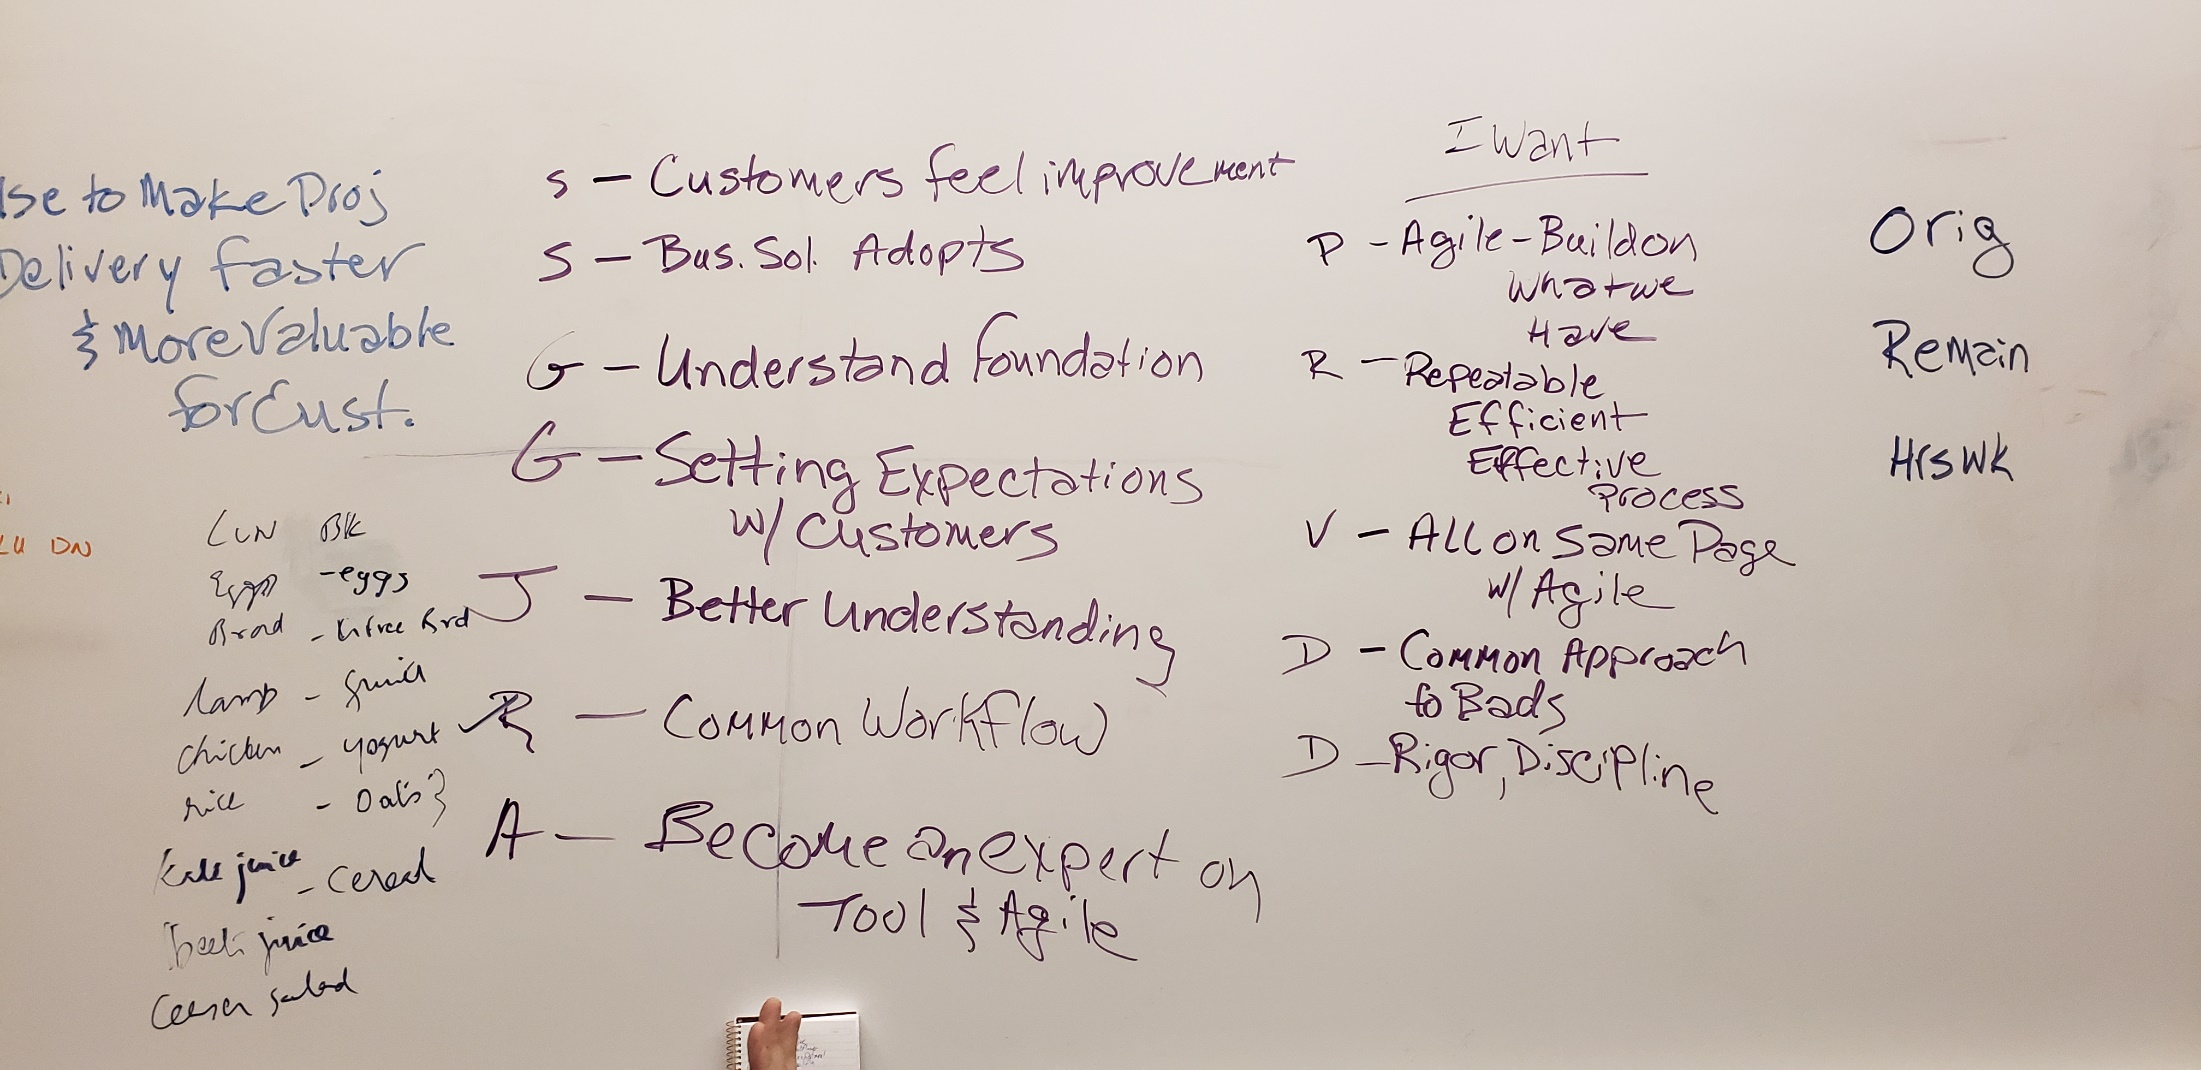 Use to Make Proj
Delivery faster
& More Valuable
for Cust.
LU DN
Lun Bk
Eggs - eggs
Bread - Brd
Lamp
chicken - yogurt
rice - Oats
kale juice
- Cereal
beet juice
Ceaser salad
S - Customers feel improvement
S - Bus. Sol. Adopts
G - Understand foundation
G - Setting Expectations
w/ Customers
J - Better Understanding
R - Common Workflow
A - Become an expert on
Tool & Agile
I Want
P - Agile - Build on
What we
Have
R - Repeatable
Efficient
Effective
Process
V - All on Same Page
w/ Agile
D - Common Approach
to Bads
D - Rigor, Discipline
Orig
Remain
Hrs Wk